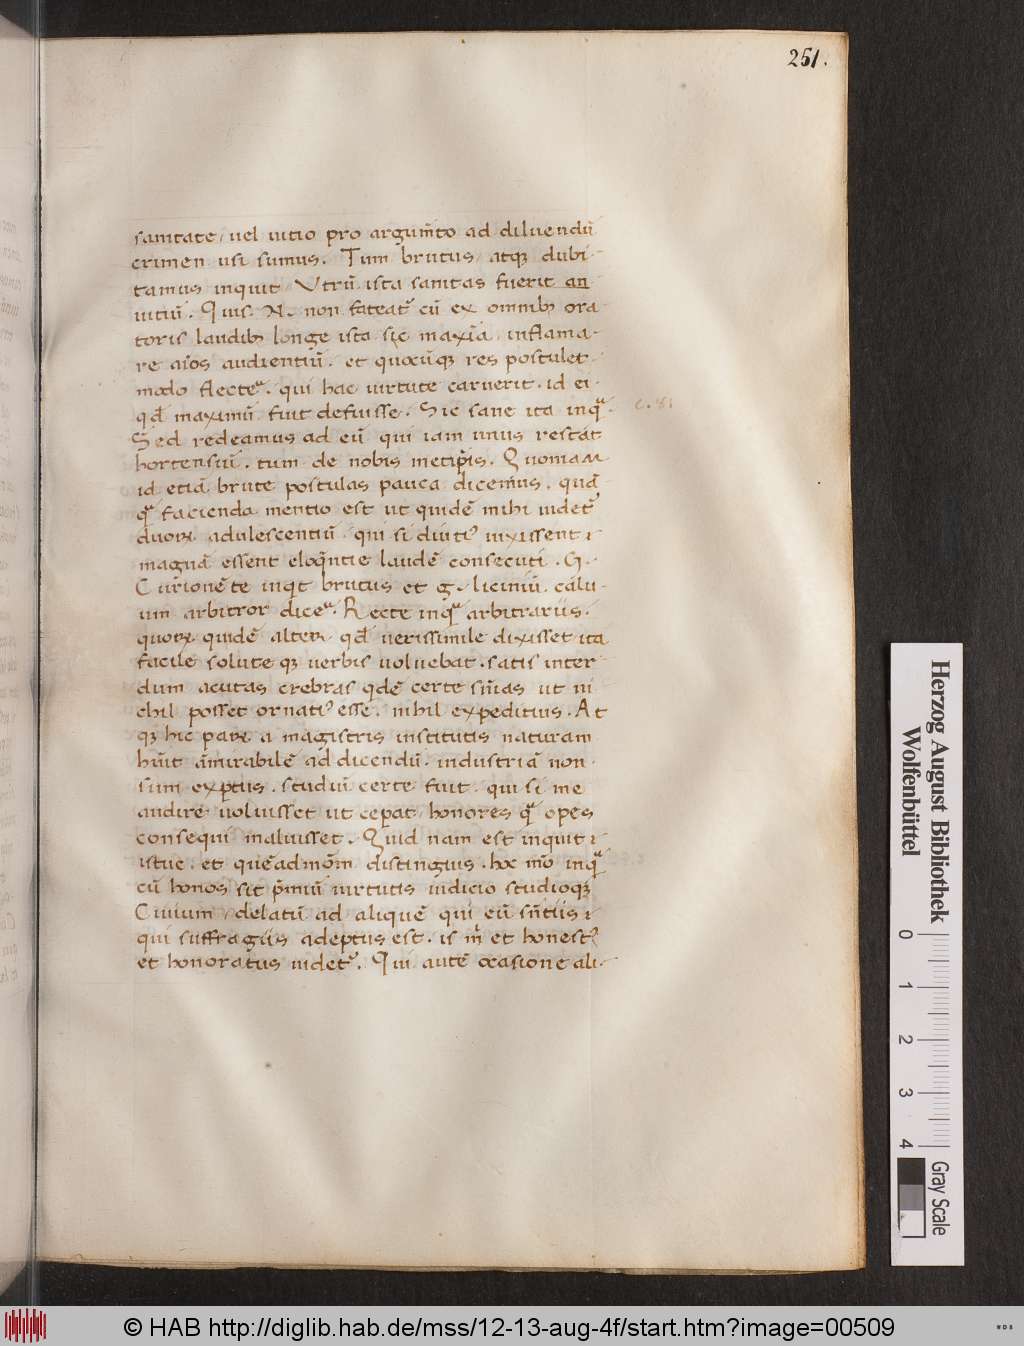 251.
sanitate / uel uitio pro argum̄to ad diluendū
crimen usi sumus. Tum brutus / atqꝫ dubi-
tamus inquit / Vtrū ista sanitas fuerit an
uitiū. Quis. N. non fateatᷣ cū ex omnibꝫ ora
toris laudibꝫ longe ista sic maxīa inflama-
re aīos audientiū. et quocūqꝫ res postulet
modo flecteᷣ. qui hac uirtute caruerit. id ei-
qd̄ maximū fuit defuisse. Sic sane ita inqᷓ.
Sed redeamus ad eū qui iam unus restat
hortensiū. tum de nobis metip̄is. Quoniam
id etiā brute postulas pauca dicem̄us. quā-
qᷓ facienda mentio est ut quidē mihi uidetᷣ
duoꝝ adulescentiū qui si diutiꝰ uixissent
magnā essent eloq̄ntie laudē consecuti. G.
Curionē te inqit brutus et g. liciniū. calu-
um arbitror diceᷣ. Recte inqᷓ arbitrarius.
quoꝝ quidē alteꝛ qd̄ uerissimile dixisset ita
facile solute qꝫ uerbis uoluebat. satis inter
dum acutas crebras qdē certe sn̄ias ut ni
chil posset ornatiꝰ esse. nihil expeditius. At
qꝫ hic paꝝ a magistris institutis naturam
hūit am̄irabilē ad dicendū. industriā non-
sum exptus. studiū certe fuit. qui si me
audire uoluisset ut ceperat / honores qᷓ opes
consequi maluisset. Quid nam est inquit
istuc. et quēadmōm distinguis. hoc mō inqᷓ
cū honos sit p̄miū uirtutis iudicio studioqꝫ
Ciuium / delatū ad aliquē qui eū sn̄tiis
qui suffragiis adeptus est. is m̄ et honestꝰ
et honoratus uidetᷣ. Qui autē occasione ali-
Herzog August Bibliothek
Wolfenbüttel
0 1 2 3 4
Gray Scale
© HAB http://diglib.hab.de/mss/12-13-aug-4f/start.htm?image=00509